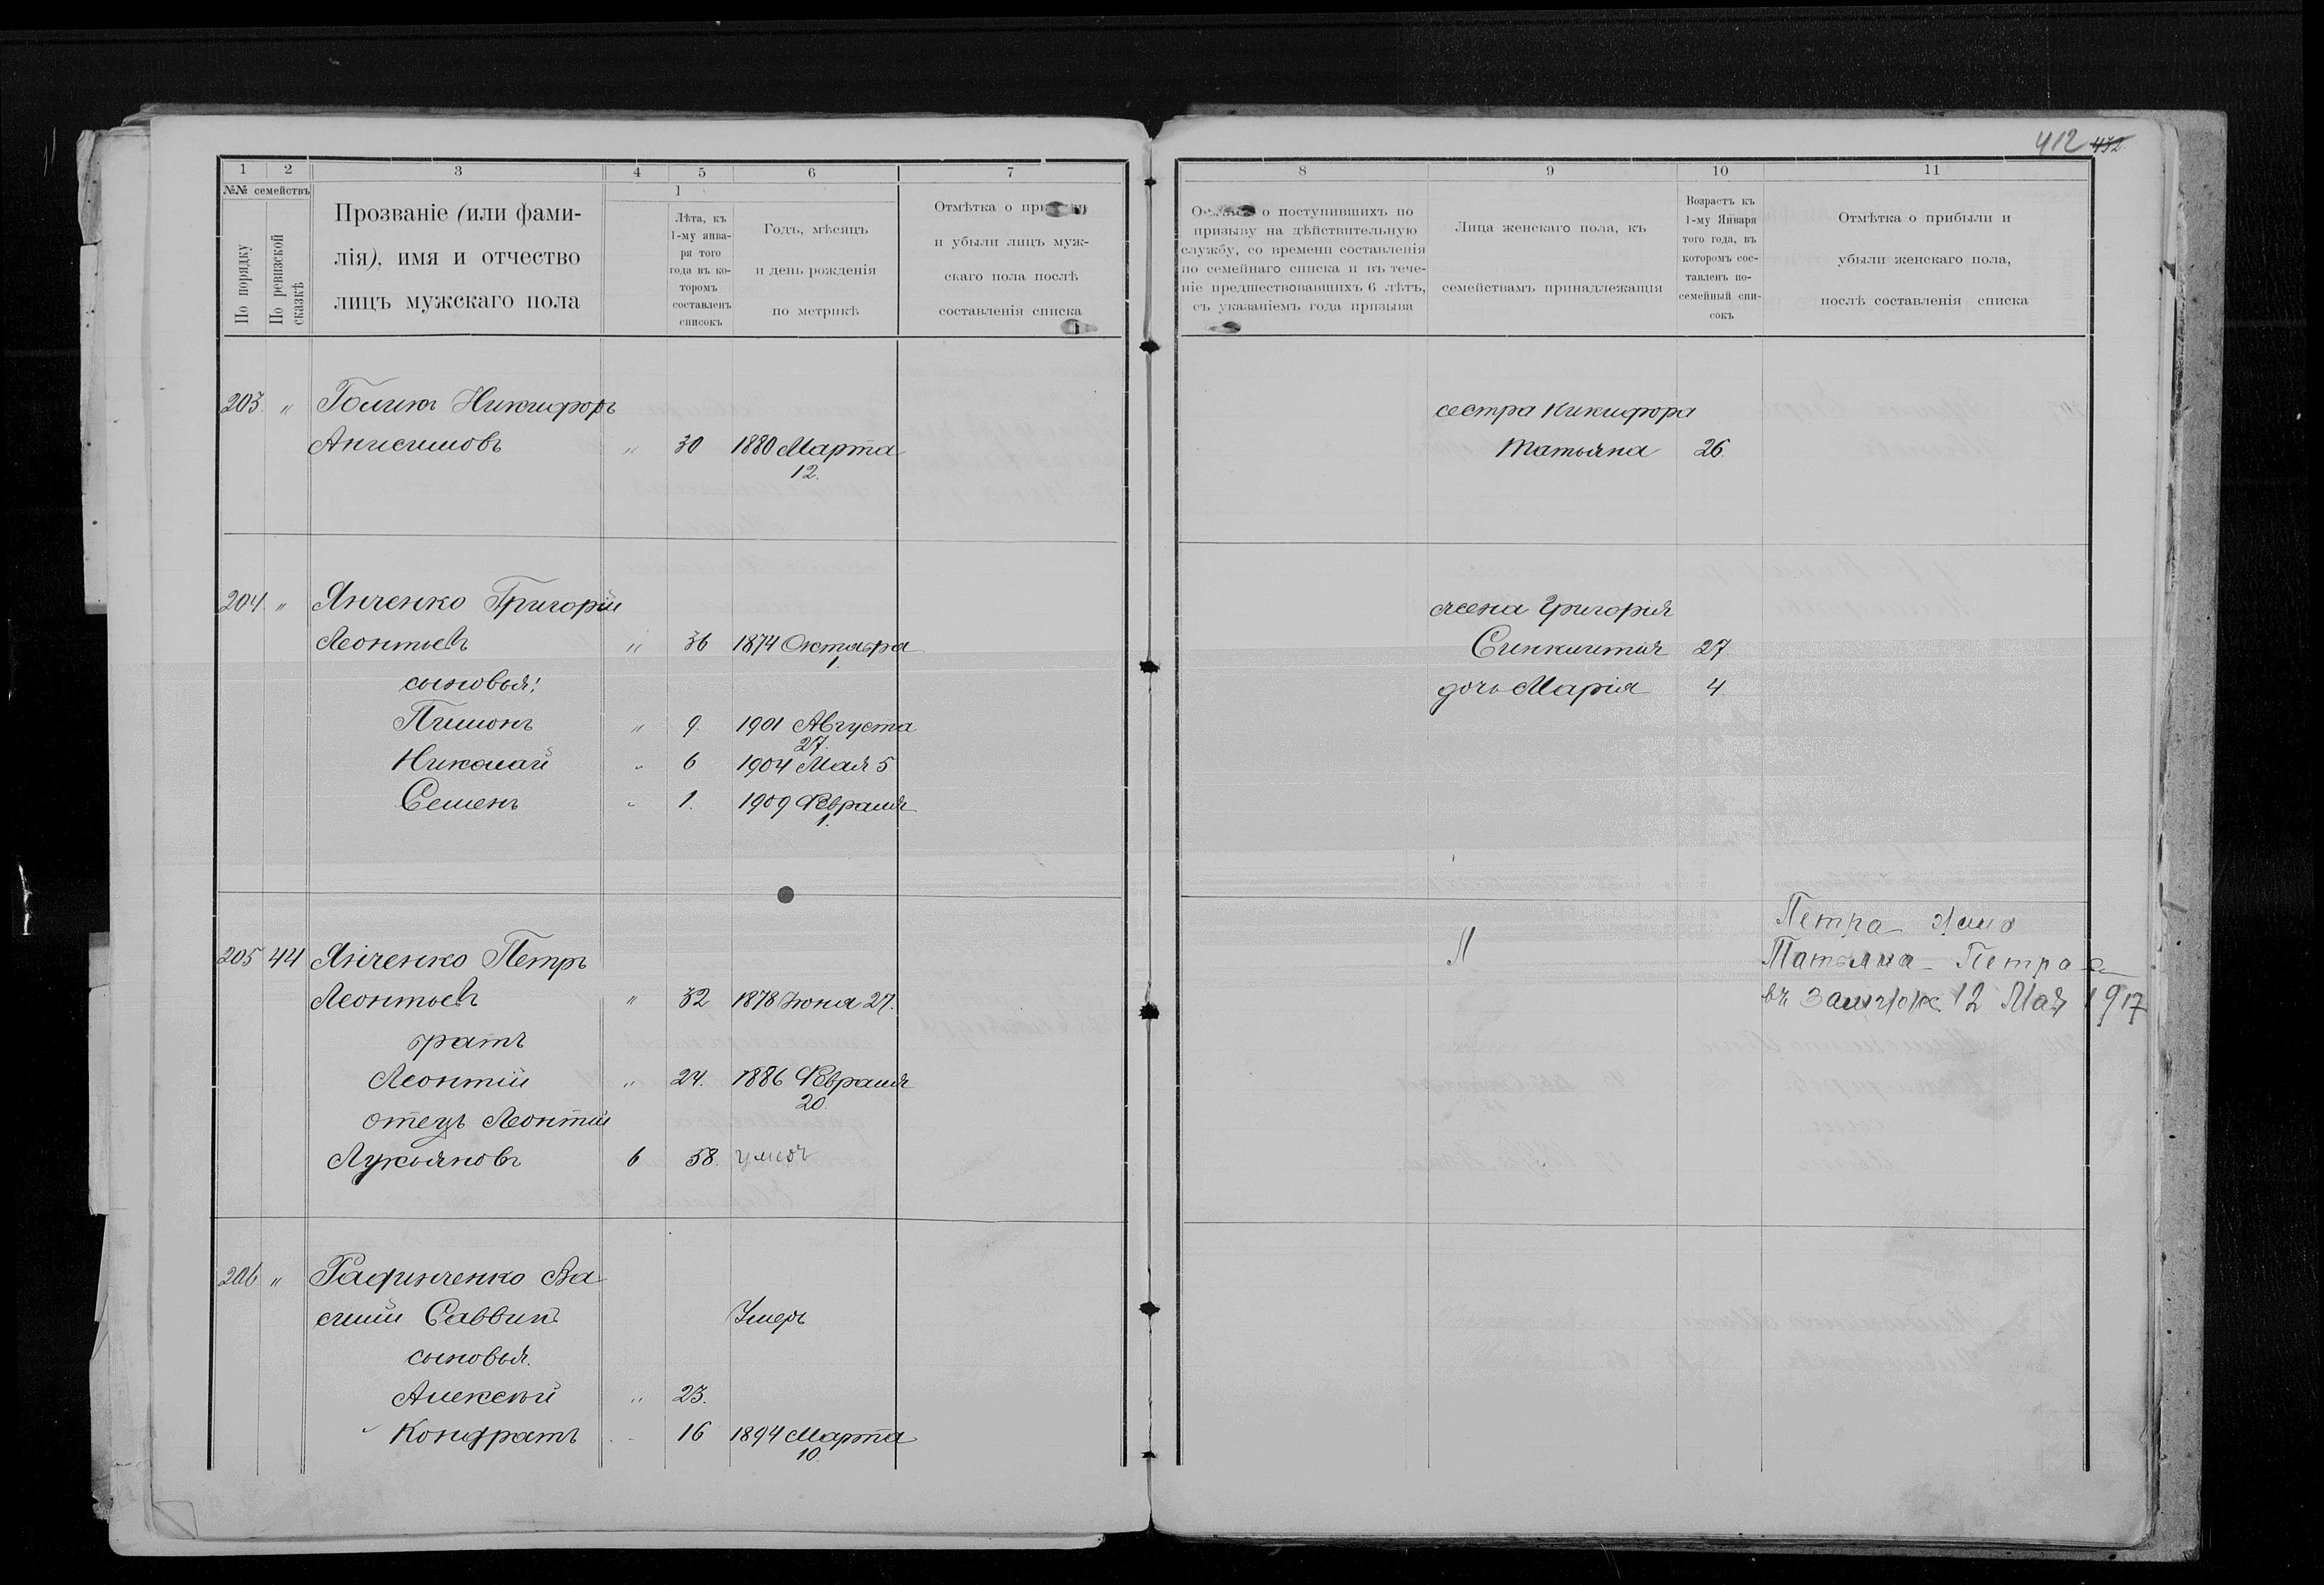 412 432
1 2 3 4 5 6 7
№№ семействъ
По порядку
По ревизской сказкѣ
Прозваніе (или фами-
лія), имя и отчество
лицъ мужскаго пола
1
Лѣта, къ
1-му янва-
ря того
года въ ко-
торомъ
составленъ
списокъ
Годъ, мѣсяцъ
и день рожденія
по метрикѣ
Отмѣтка о
и убыли лицъ муж-
скаго пола послѣ
составленія списка
203 " Голикъ Никифоръ
Анисимовъ " 30 1880 Марта
12.
204. " Янченко Григорій
Леонтьевъ " 36 1874 Октября
1
сыновья:
Пимонъ " 9. 1901 Августа
27.
Николай " 6 1904 Мая 5
Семенъ " 1. 1909 Февраля
1.
205 44 Янченко Петръ
Леонтьевъ " 32 1878 Іюня 27.
братъ
Леонтій " 24. 1886 Февраля
20.
отецъ Леонтій
Лукьяновъ 6 58.
206 " Рафинченко Ва
силій Саввинъ Умеръ
сыновья.
Алексѣй " 23.
Кондратъ 16 1894 Марта
10.
8 9 10 11
о поступившихъ по
призыву на дѣйствительную
службу, со времени составленія
по семейнаго списка и въ тече-
ніе предшествовавшихъ 6 лѣтъ,
съ указаніемъ года призыва
Лица женскаго пола, къ
семействамъ принадлежащія
Возрастъ къ
1-му Января
того года, въ
которомъ сос-
тавленъ по-
семейный спи-
сокъ
Отмѣтка о прибыли и
убыли женскаго пола,
послѣ составленія списка
сестра Никифора
Татьяна 26.
жена Григорія
Синклитія 27.
дочь Марія 4.
Петра
Татьяна Петра
въ 12 Мая 1917